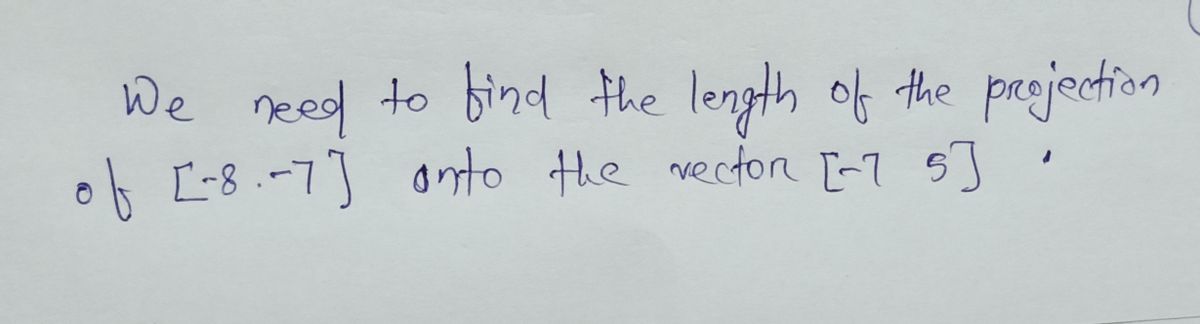 We need to find the length of the projection
of [-8.-7] onto the vector [-7 5] .